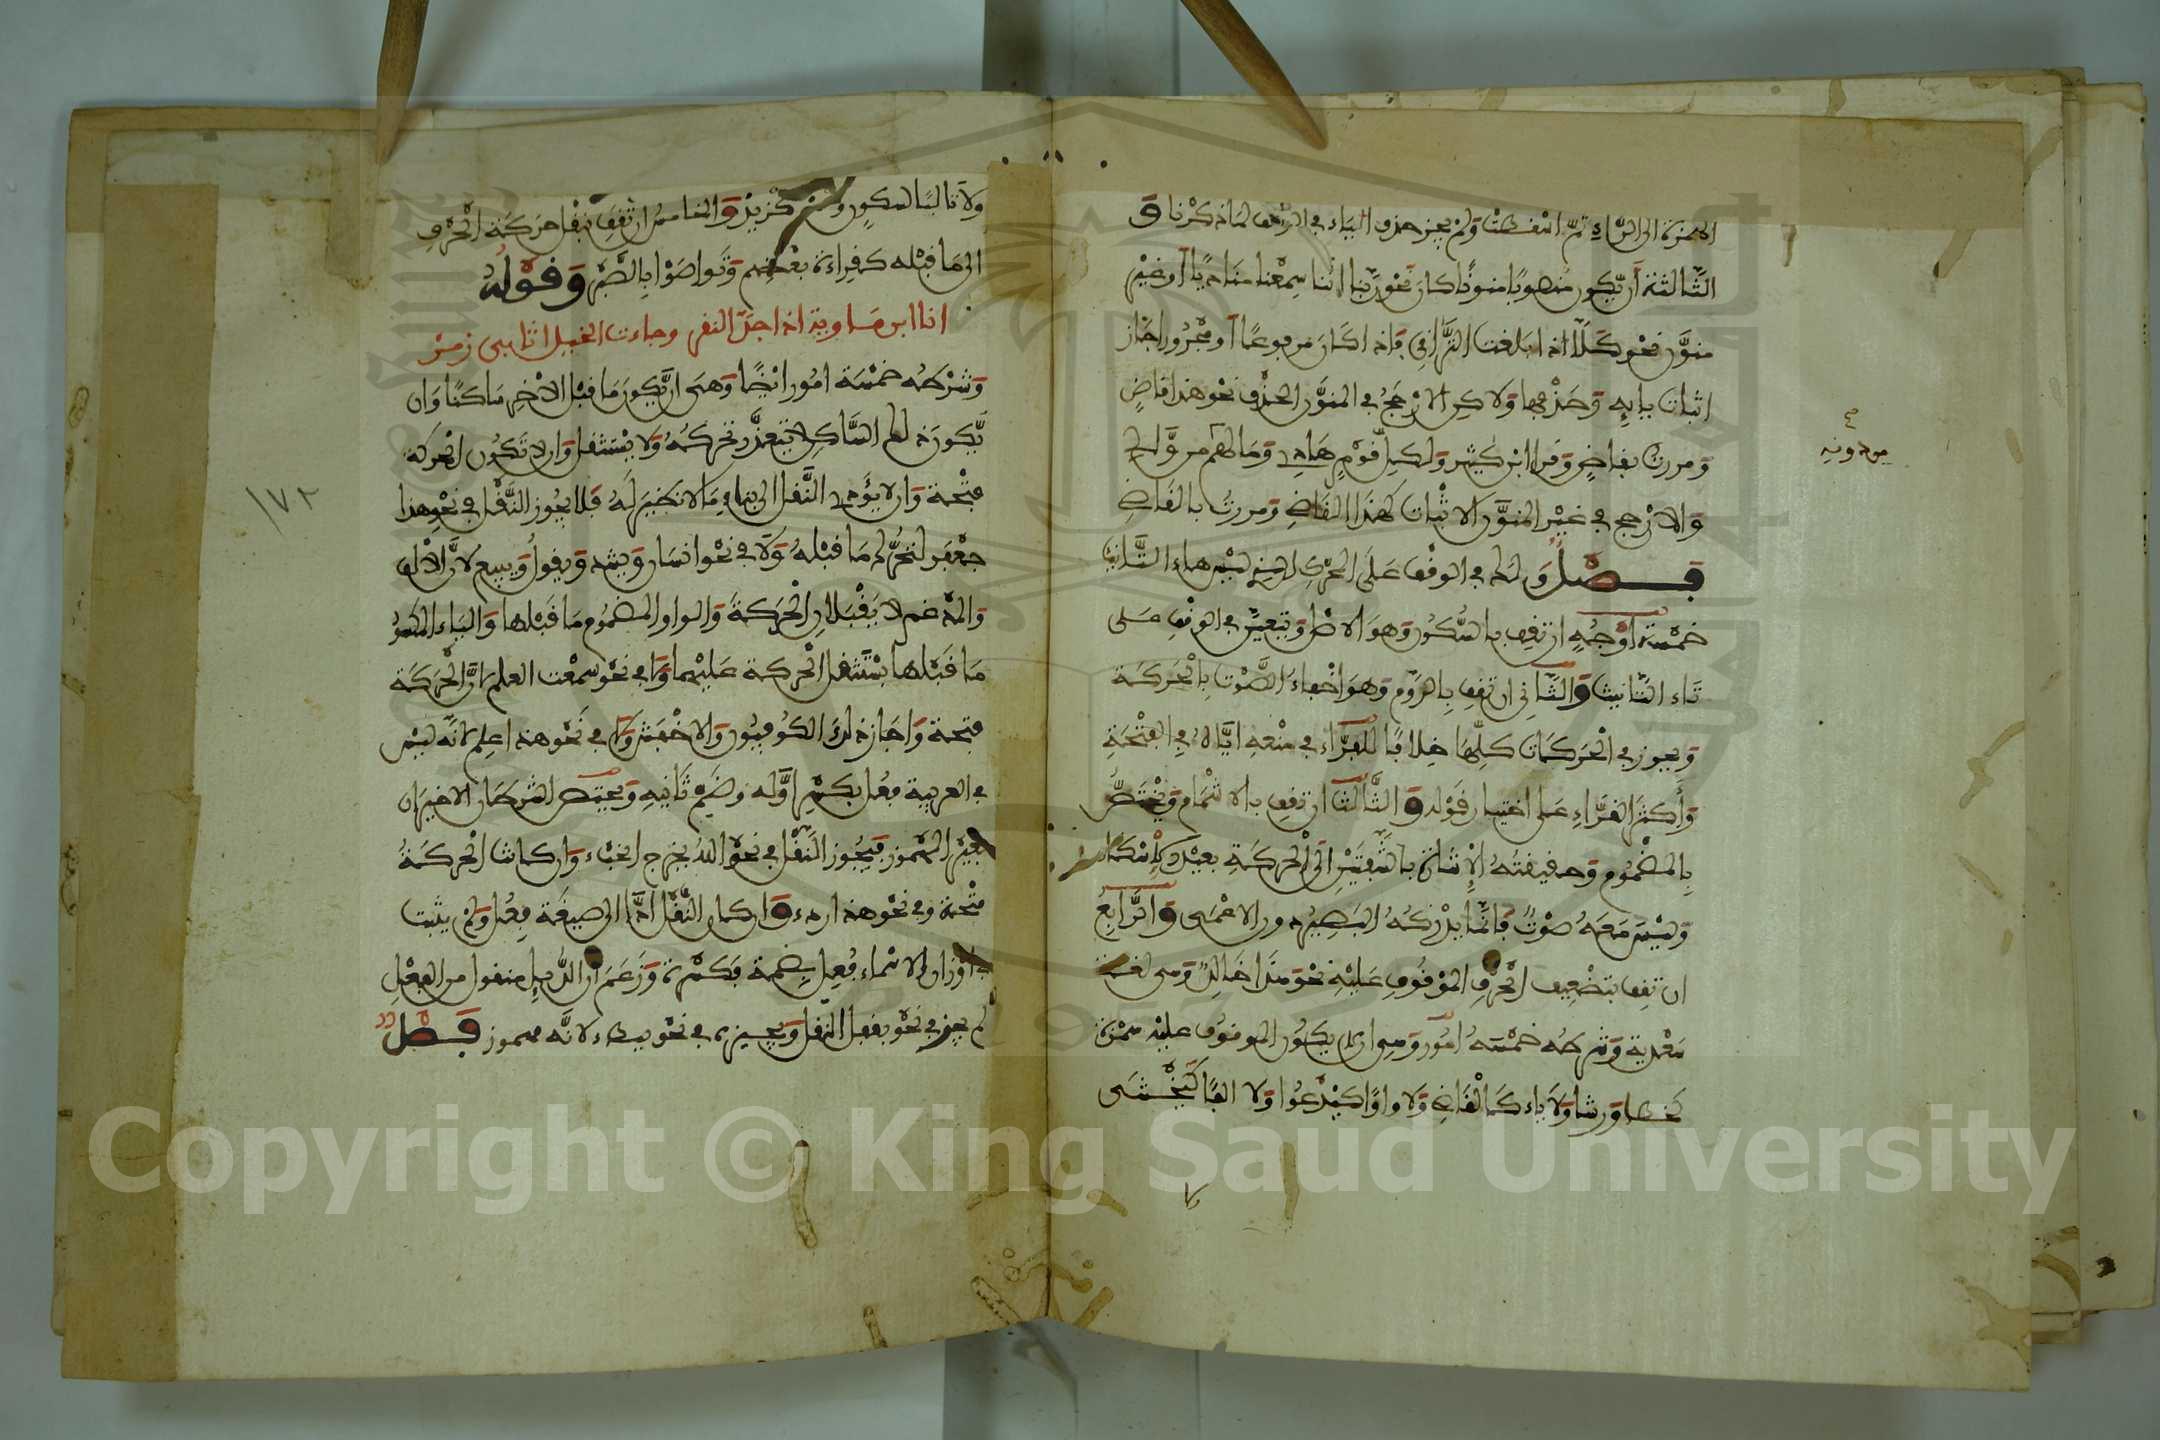 الهمزة الى الراء ثم اسقطت ولم يجز حذف الياء في الوقف لما ذكرنا و
الثالثة ان يكون منصوبا منونا كان نحو ربنا اننا سمعنا مناديا او غير
منون نحو كلا اذا بلغت التراقي فاذا كان مرفوعا او مجرورا جاز
اثبات يايه وحذفها ولاكن الارجح في المنون الحذف نحو هذا قاض
ومررت بقاض وقرا ابن كثير ولكل قوم هادي وما لهم من والي
والارجح في غير المنون الاثبات كهذا القاضي ومررت بالقاضي
فصل ولك في الوقف على المحرك الذي ليس هاء التانيث
خمسة اوجه ان تقف بالسكون وهو الاصل ويتعين في الوقف على
تاء التانيث والثاني ان تقف بالروم وهو اخفاء الصوت بالحركة
ويجوز في الحركات كلها خلافا للفراء في منعه اياه في الفتحة
واكثر القراء على اختيار قوله والثالث ان تقف بالاشمام ويختص
بالمضموم وحقيقته الاشارة بالشفتين الى الحركة بعيد الاسكان
وليس معه صوت فانما يدركه البصير دون الاعمى والرابع
ان تقف بتضعيف الحرف الموقوف عليه نحو هذا خالد وهي لغة
سعدية وشرطه خمسة امور وهي ان لا يكون الموقوف عليه همزة
كخطا ورشا ولا ياء كالقاضي ولا واوا كيدعوا ولا الفا كيخشى
مدونه
ولا تاليا لسكون والخامس ان تقف بنقل حركة الحرف
الى ما قبله كقراءة بعضهم وتواصوا بالصبر وقوله
انا ابن ماوية اذ اجد النقر وجاءت الخيل اثابي زمر
وشرطه خمسة امور ايضا وهي ان يكون ما قبل الاخر ساكنا وان
يكون ذلك الساكن لا يتعذر تحركه ولا يستثقل وان لا تكون الحركة
فتحة وان لا يؤدي النقل الى بناء لا نظير له فلا يجوز النقل في نحو هذا
جعفر لتحرك ما قبله ولا في نحو انسان ويشد ويقول ويبيع لان الالف
والمدغم لا يقبلان الحركة والواو المضموم ما قبلها والياء المكسور
ما قبلها تستثقل الحركة عليهما ولا في نحو سمعت العلم لان الحركة
فتحة واجاز ذلك الكوفيون والاخفش ولا في نحو هذا علم لانه ليس
في العربية فعل بكسر اوله وضم ثانيه ويختص الشرطان الاخيران
بغير المهموز فيجوز النقل في نحو لله يخرج الخبء وان كانت الحركة
فتحة وفي نحو هذا ردء وان كان النقل ادا الى صيغة فعل ولم يثبت
في اوزان الاسماء فعل بضمة فكسرة وزعم ان الدئل منقول من الفعل
لم يجز في نحو بقفل النقل ويجيزه في نحو ببطء لانه مهموز فصل
١٧٢